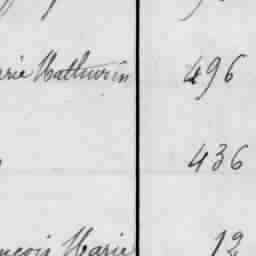 rie Mathurin 496
436
nçois Marie 12